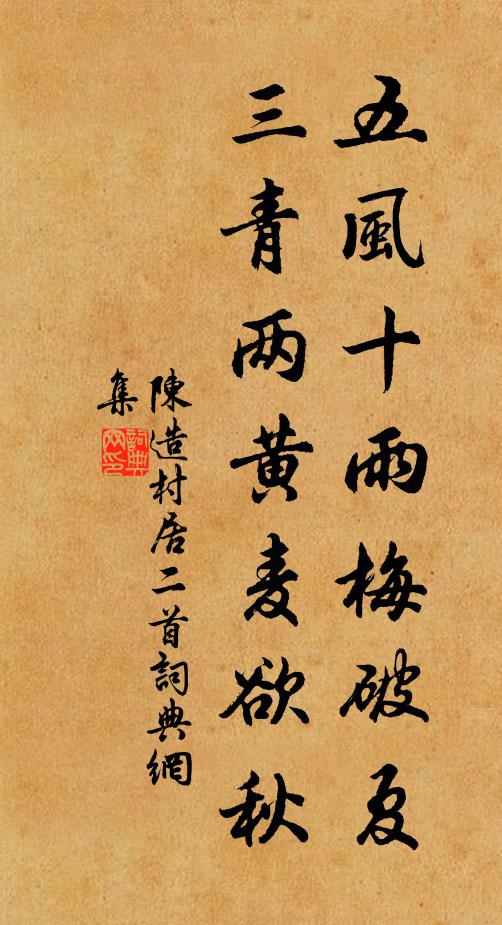 五風十雨梅破夏
三青两黄麦欲秋
陳造村居二首詞典網
集
詞典
网印